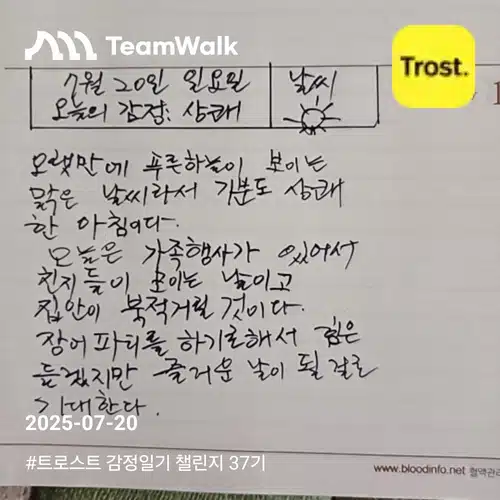 TeamWalk
Trost.
7월 20일 일요일
오늘의 감정: 상쾌
날씨
오랫만에 푸른하늘이 보이는
맑은 날씨라서 기분도 상쾌
한 아침이다.
오늘은 가족행사가 있어서
친지들이 모이는 날이고
집안이 북적거릴 것이다.
장어파티를 하기로해서 힘은
들겠지만 즐거운 날이 될걸로
기대한다.
2025-07-20
#트로스트 감정일기 챌린지 37기
www.bloodinfo.net 혈액관리